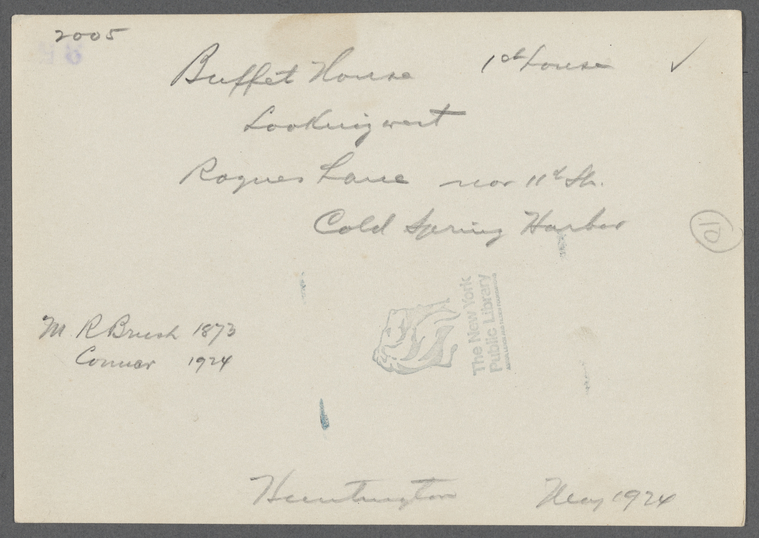 2005
Buffet House 1st house ✓
Looking west
Rogues Lane near 11th St.
Cold Spring Harbor
10
The New York
Public Library
M R Brush 1873
Conner 1924
Huntington May 1924